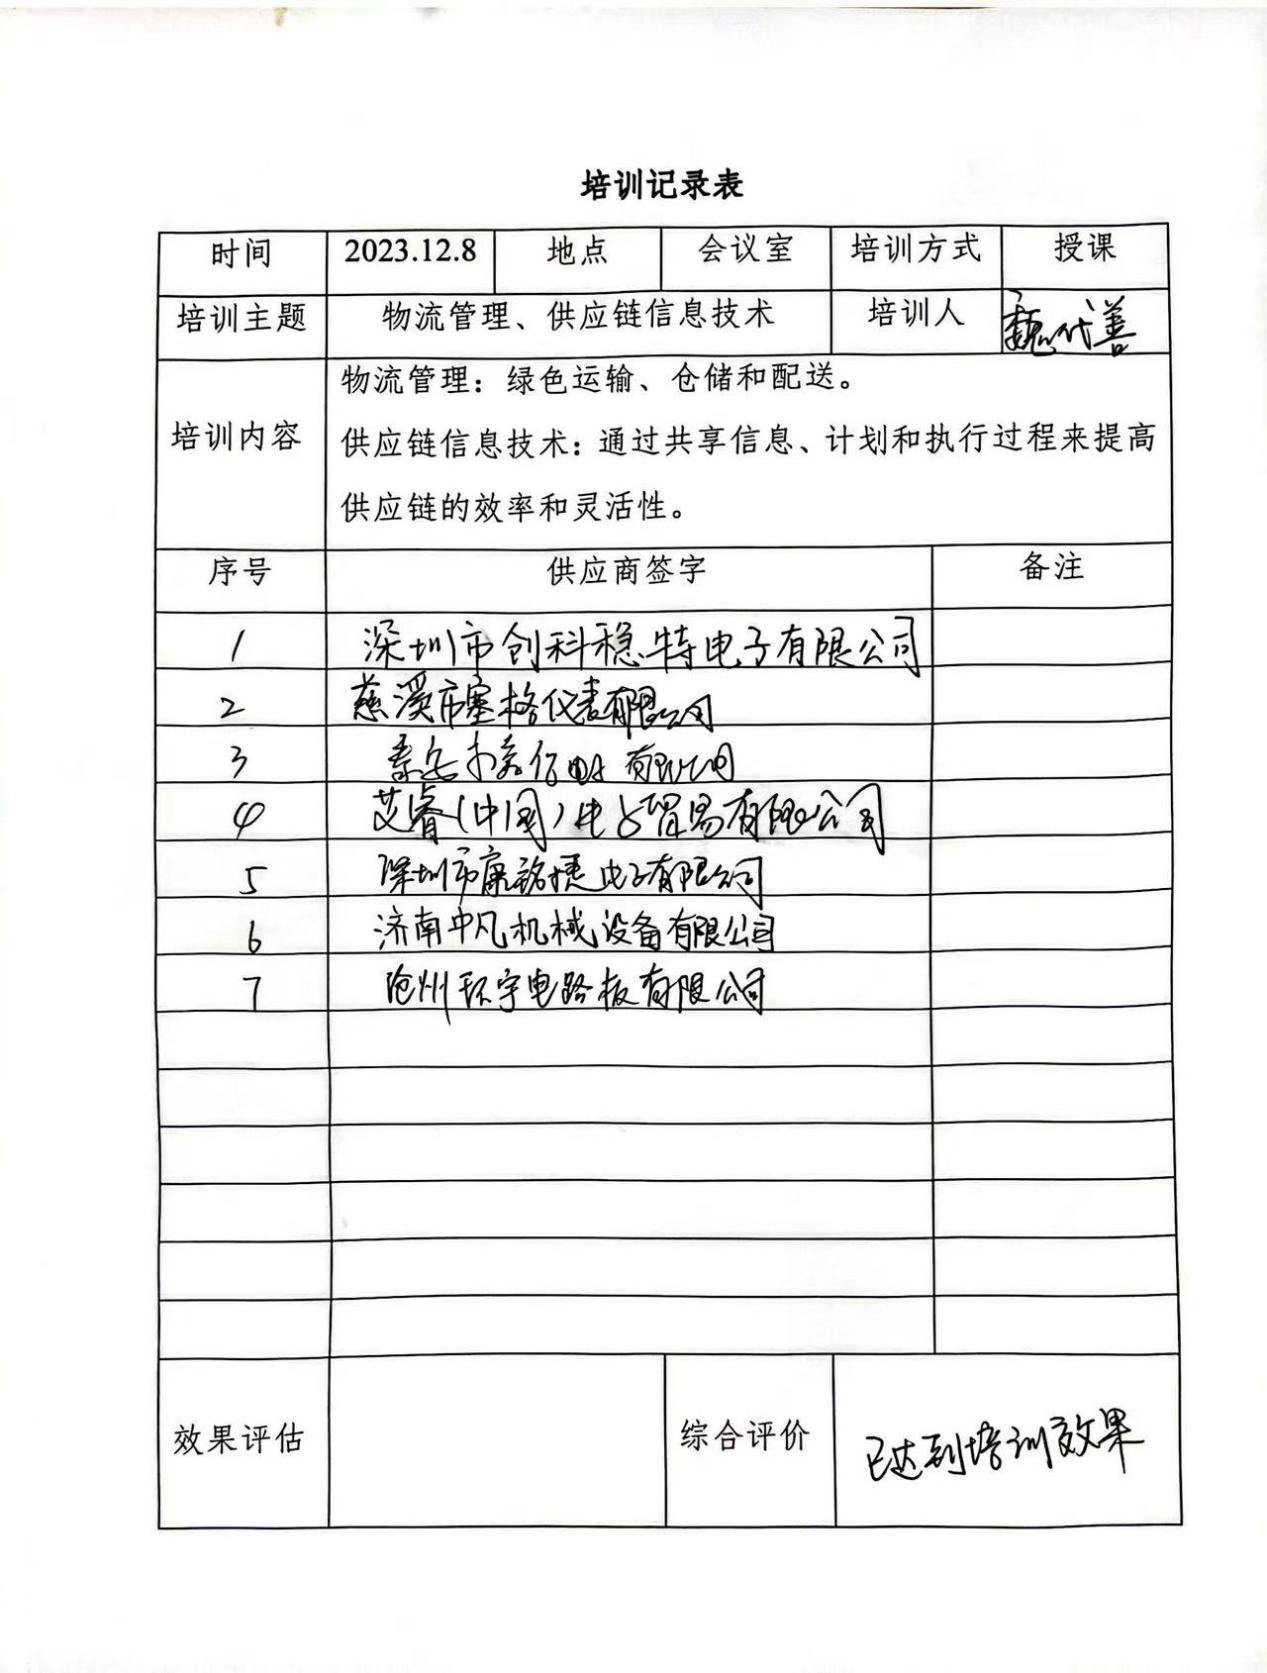 培训记录表
时间 2023.12.8 地点 会议室 培训方式 授课
培训主题 物流管理、供应链信息技术 培训人 魏代善
培训内容
物流管理：绿色运输、仓储和配送。
供应链信息技术：通过共享信息、计划和执行过程来提高
供应链的效率和灵活性。
序号 供应商签字 备注
1 深圳市创科稳特电子有限公司
2 慈溪市塞格仪表有限公司
3 泰安 有限公司
4 艾睿（中国）电子贸易有限公司
5 深圳市康铭捷电子有限公司
6 济南中凡机械设备有限公司
7 沧州环宇电路板有限公司
效果评估 综合评价 已达到培训效果